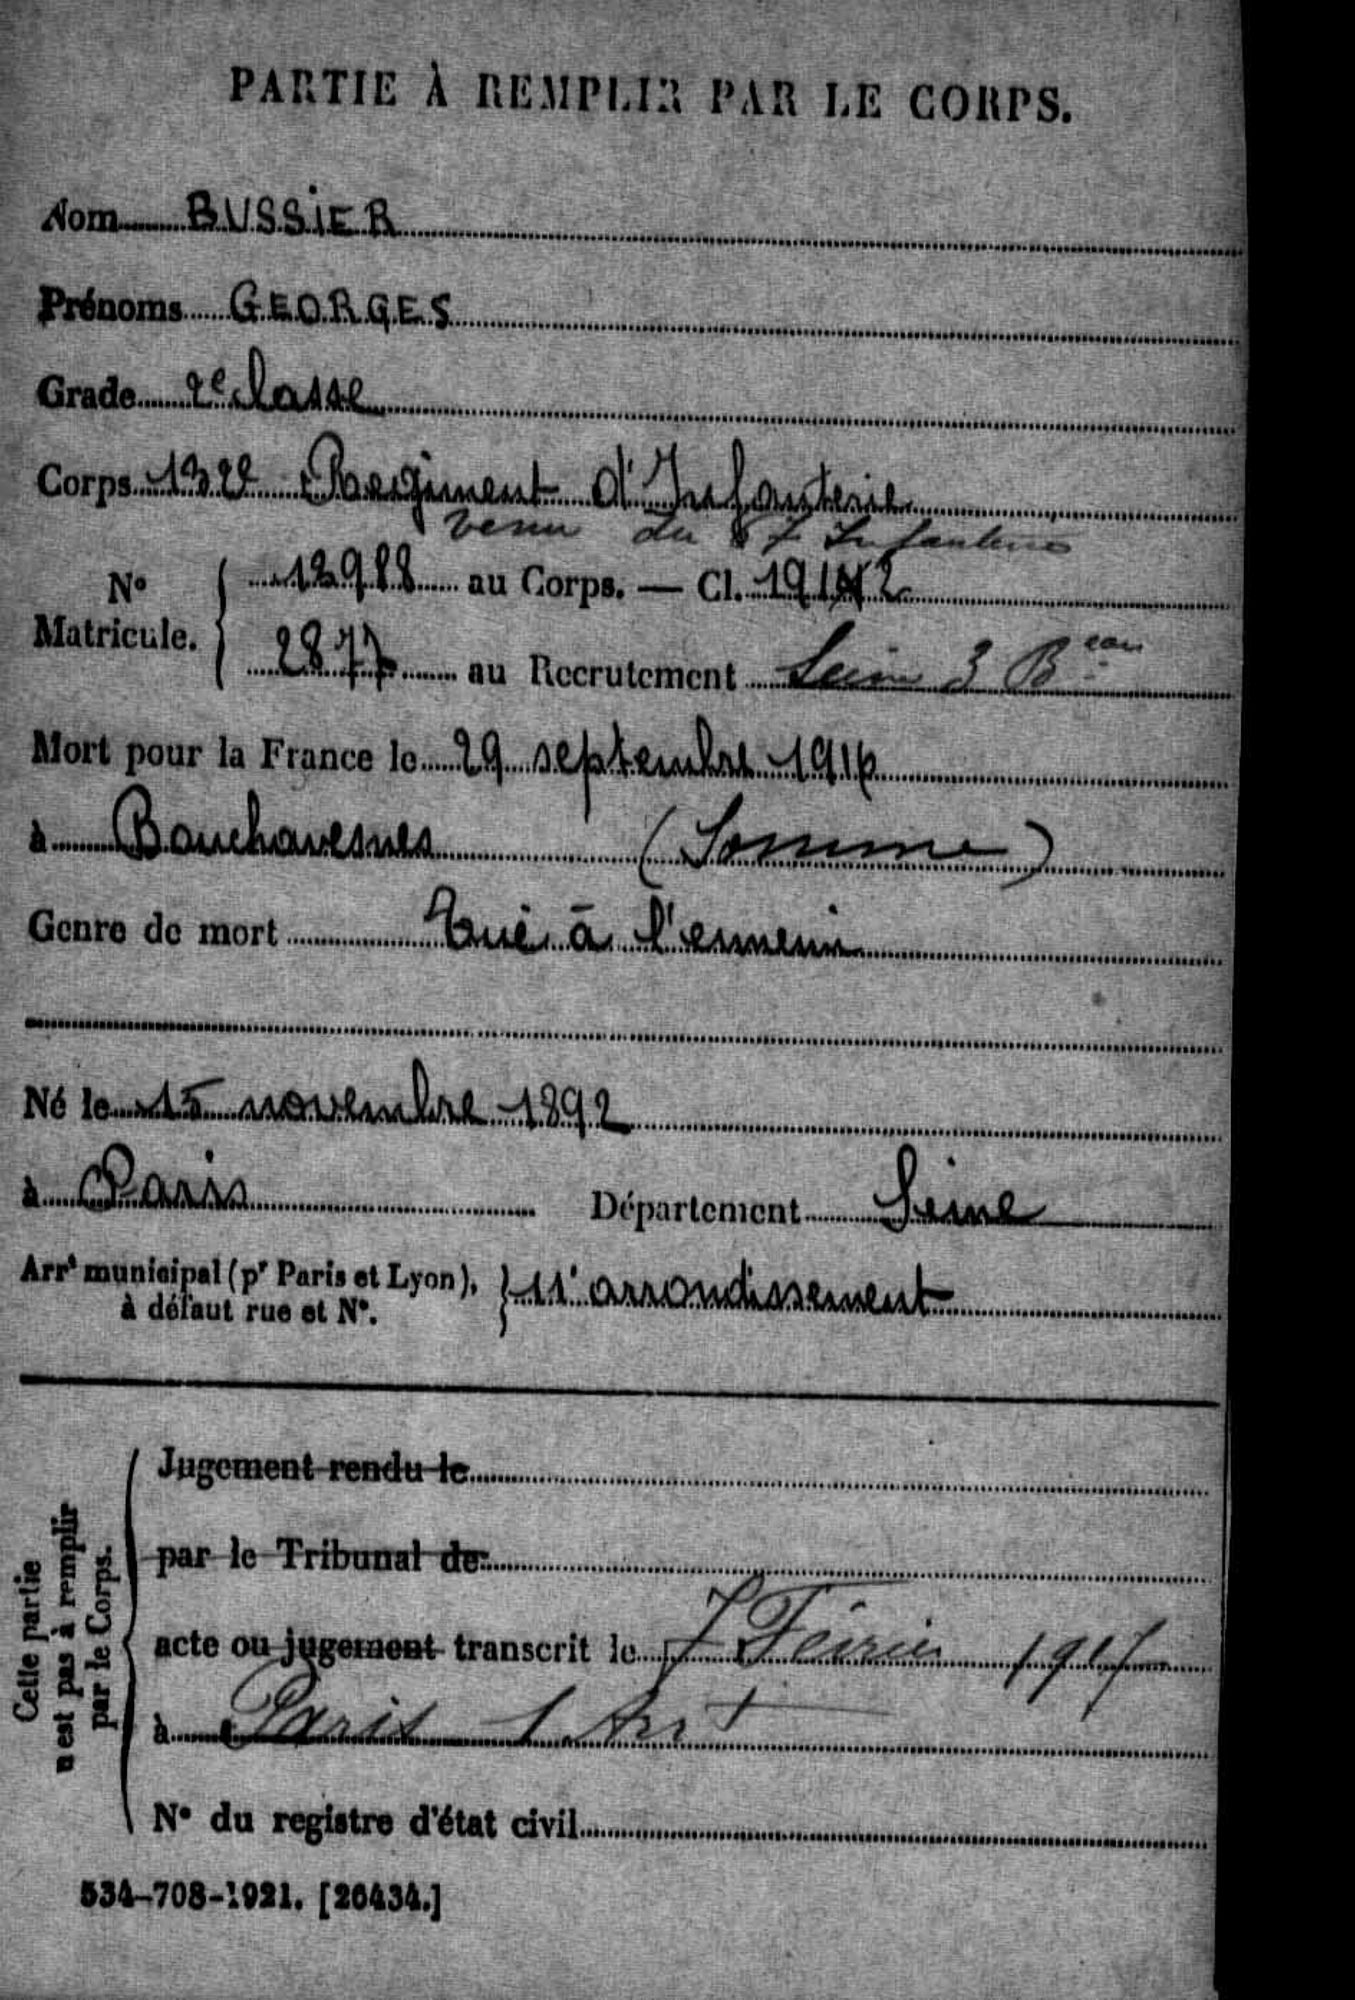 PARTIE À REMPLIR PAR LE CORPS.
Nom BUSSIER
Prénoms GEORGES
Grade 2e classe
Corps 132e Regiment d'Infanterie
venu du 67 Infanterie
No Matricule. 12988 au Corps. — Cl. 1912
2877 au Recrutement Seine 3 Beau
Mort pour la France le 29 septembre 1916
à Bouchavesnes (Somme)
Genre de mort Tué à l'ennemi
Né le 15 novembre 1892
à Paris Département Seine
Arrt municipal (pr Paris et Lyon), à défaut rue et No. 11e arrondissement
Cette partie n'est pas à remplir par le Corps.
Jugement rendu le
par le Tribunal de
acte ou jugement transcrit le 7 Février 1917
à Paris 1 Arrt
No du registre d'état civil
534-708-1921. [26434.]